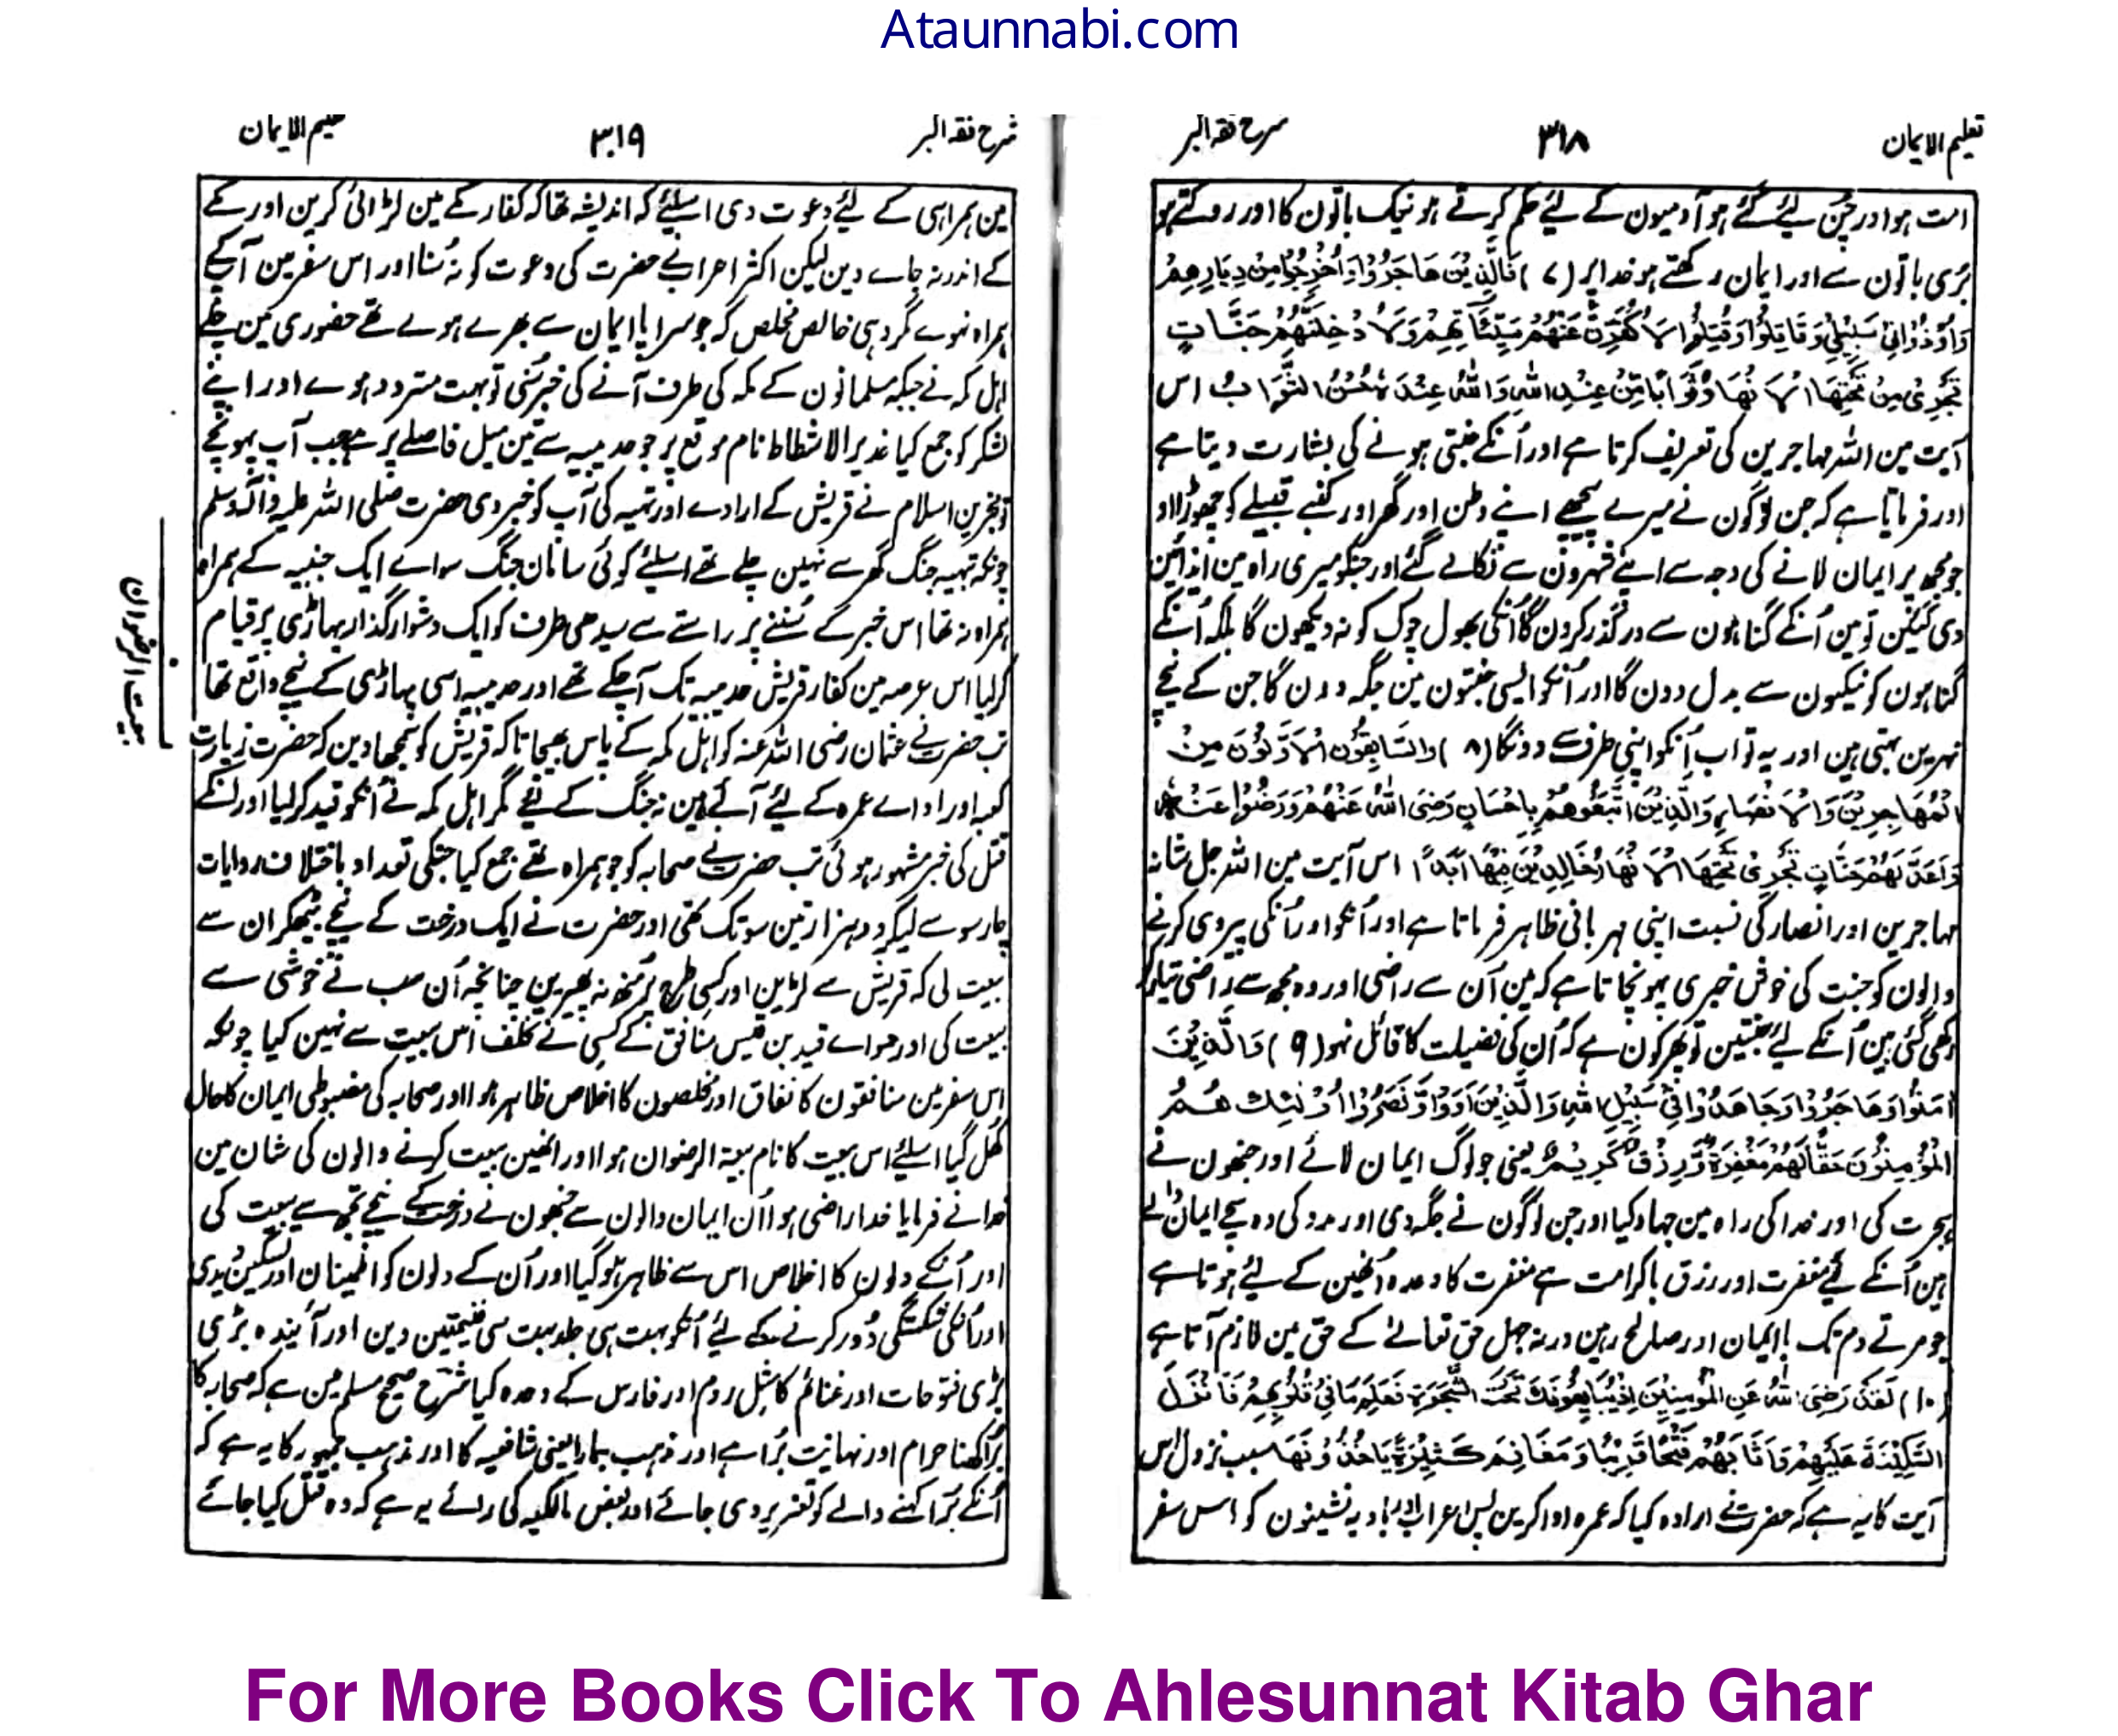 Ataunnabi.com
تعلیم الایمان ۳۱۸ شرح فقہ اکبر
امت ہو اور چن لیے گئے ہو آدمیون کے لیے حکم کرتے ہو نیک باتون کا اور روکتے ہو
بری باتون سے اور ایمان رکھتے ہو خدا پر (۷) فَالَّذِیْنَ هَاجَرُوْا وَاُخْرِجُوْا مِنْ دِیَارِهِمْ
وَاُوْذُوْا فِیْ سَبِیْلِیْ وَقَاتَلُوْا وَقُتِلُوْا لَاُکَفِّرَنَّ عَنْهُمْ سَیِّئَاتِهِمْ وَلَاُدْخِلَنَّهُمْ جَنَّاتٍ
تَجْرِیْ مِنْ تَحْتِهَا الْاَنْهَارُ ثَوَابًا مِّنْ عِنْدِ اللهِ وَاللهُ عِنْدَهٗ حُسْنُ الثَّوَابِ اس
آیت مین اللہ مہاجرین کی تعریف کرتا ہے اور اُنکے جنتی ہونے کی بشارت دیتا ہے
اور فرماتا ہے کہ جن لوگون نے میرے پیچھے اپنے وطن اور گھر اور کنبے قبیلے کو چھوڑا اور
جو مجھ پر ایمان لانے کی وجہ سے اپنے شہرون سے نکالے گئے اور جنکو میری راہ مین ایذائین
دی گئیں تو مین اُنکے گناہون سے درگذر کرون گا اُنکی بھول چوک کو نہ دیکھون گا بلکہ اُنکے
گناہون کو نیکیون سے بدل دون گا اور اُنکو ایسی جنتون مین جگہ دون گا جن کے نیچے
نہرین بہتی ہین اور یہ ثواب اُنکو اپنی طرف سے دونگا (۸) وَالسَّابِقُوْنَ الْاَوَّلُوْنَ مِنَ
الْمُهَاجِرِیْنَ وَالْاَنْصَارِ وَالَّذِیْنَ اتَّبَعُوْهُمْ بِاِحْسَانٍ رَضِیَ اللهُ عَنْهُمْ وَرَضُوْا عَنْهُ
وَاَعَدَّ لَهُمْ جَنَّاتٍ تَجْرِیْ تَحْتَهَا الْاَنْهَارُ خَالِدِیْنَ فِیْهَا اَبَدًا اس آیت مین اللہ جل شانہ
مہاجرین اور انصار کی نسبت اپنی مہربانی ظاہر فرماتا ہے اور اُنکو اور اُنکی پیروی کرنے
والون کو جنت کی خوش خبری پہونچاتا ہے کہ مین اُن سے راضی اور وہ مجھ سے راضی تیار کر
رکھی گئی ہین اُنکے لیے جنتین تو پھر کون ہے کہ اُن کی فضیلت کا قائل نہو (۹) وَالَّذِیْنَ
اٰمَنُوْا وَهَاجَرُوْا وَجَاهَدُوْا فِیْ سَبِیْلِ اللهِ وَالَّذِیْنَ اٰوَوْا وَّنَصَرُوْا اُولٰئِكَ هُمُ
الْمُؤْمِنُوْنَ حَقًّا لَهُمْ مَغْفِرَةٌ وَّرِزْقٌ کَرِیْمٌ یعنی جو لوگ ایمان لائے اور جنھون نے
ہجرت کی اور خدا کی راہ مین جہاد کیا اور جن لوگون نے جگہ دی اور مدد کی وہ سچے ایمان والے
ہین اُنکے لیے مغفرت اور رزق باکرامت ہے مغفرت کا وعدہ اُنھین کے لیے ہوتا ہے
جو مرتے دم تک باایمان اور صالح رہین ورنہ جہل حق تعالے کے حق مین لازم آتا ہے
(۱۰) لَقَدْ رَضِیَ اللهُ عَنِ الْمُؤْمِنِیْنَ اِذْ یُبَایِعُوْنَكَ تَحْتَ الشَّجَرَةِ فَعَلِمَ مَا فِیْ قُلُوْبِهِمْ فَاَنْزَلَ
السَّکِیْنَةَ عَلَیْهِمْ وَاَثَابَهُمْ فَتْحًا قَرِیْبًا وَمَغَانِمَ کَثِیْرَةً یَاخُذُوْنَهَا سبب نزول اس
آیت کا یہ ہے کہ حضرت نے ارادہ کیا کہ عمرہ ادا کرین پس اعراب اور بادیہ نشینون کو اس سفر
شرح فقہ اکبر ۳۱۹ تعلیم الایمان
مین ہمراہی کے لیے دعوت دی اسلیے کہ اندیشہ تھا کہ کفار کے مین لڑائی کرین اور کے
کے اندر نہ جاے دین لیکن اکثر اعراب نے حضرت کی دعوت کو نہ سُنا اور اس سفر مین آپ کے
ہمراہ نہوے مگر وہی خالص مخلص کہ جو سراپا ایمان سے بھرے ہوے تھے حضوری مین چلے
اہل مکہ نے جبکہ مسلمانون کے مکہ کی طرف آنے کی خبر سُنی تو بہت متردد ہوے اور اپنے
لشکر کو جمع کیا غدیر الاشطاط نام موقع پر جو حدیبیہ سے تین میل فاصلے پر ہے جب آپ پہونچے
تو مخبرین اسلام نے قریش کے ارادے اور تہیہ کی آپ کو خبر دی حضرت صلی اللہ علیہ وآلہ وسلم
چونکہ تہیہ جنگ گھر سے نہین چلے تھے اسلیے کوئی سامان جنگ سواے ایک جنبیہ کے ہمراہ
ہمراہ نہ تھا اس خبر کے سُننے پر راستے سے سیدھی طرف کو ایک دشوار گذار پہاڑی پر قیام
کر لیا اس عرصہ مین کفار قریش حدیبیہ تک آ چکے تھے اور حدیبیہ اسی پہاڑی کے نیچے واقع تھا
تب حضرت نے عثمان رضی اللہ عنہ کو اہل مکہ کے پاس بھیجا تاکہ قریش کو سمجھا دین کہ حضرت زیارت
کعبہ اور اداے عمرہ کے لیے آئے ہین نہ جنگ کے لیے مگر اہل مکہ نے اُنکو قید کر لیا اور اُنکے
قتل کی خبر مشہور ہوئی تب حضرت نے صحابہ کو جو ہمراہ تھے جمع کیا جنکی تعداد باختلاف روایات
چار سو سے لیکر دو ہزار تین سو تک تھی اور حضرت نے ایک درخت کے نیچے بیٹھکر ان سے
بیعت لی کہ قریش سے لڑین اور کسی طرح پر مُنھ نہ پھیرین چنانچہ اُن سب نے خوشی سے
بیعت کی اور سواے قید بن قیس منافق کے کسی نے تخلف اس بیعت سے نہین کیا چونکہ
اس سفر مین منافقون کا نفاق اور مخلصون کا اخلاص ظاہر ہوا اور صحابہ کی مضبوطی ایمان کا حال
کھل گیا اسلیے اس بیعت کا نام بیعۃ الرضوان ہوا اور انھین بیعت کرنے والون کی شان مین
خدا نے فرمایا خدا راضی ہوا اُن ایمان والون سے جنھون نے درخت کے نیچے تجھ سے بیعت کی
اور اُنکے دلون کا اخلاص اس سے ظاہر ہو گیا اور اُن کے دلون کو اطمینان اور تسکین دی
اور اُنکی شکستگی دُور کرنے کے لیے اُنکو بہت ہی جلد بہت سی غنیمتین دین اور آیندہ بڑی
بڑی فتوحات اور غنائم کا مثل روم اور فارس کے وعدہ کیا شرح صحیح مسلم مین ہے کہ صحابہ کا
بُرا کھنا حرام اور نہایت بُرا ہے اور مذہب ہمارا یعنی شافعیہ کا اور مذہب جمہور کا یہ ہے کہ
اُنکے بُرا کہنے والے کو تعزیر دی جائے اور بعض مالکیہ کی رائے یہ ہے کہ وہ قتل کیا جائے
بیعت الرضوان
For More Books Click To Ahlesunnat Kitab Ghar